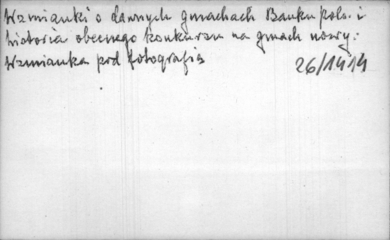 Wzmianki o dawnych gmachach Banku pols. i
historia obecnego konkursu na gmach nowy.
Wzmianka pod fotografią
26/1914